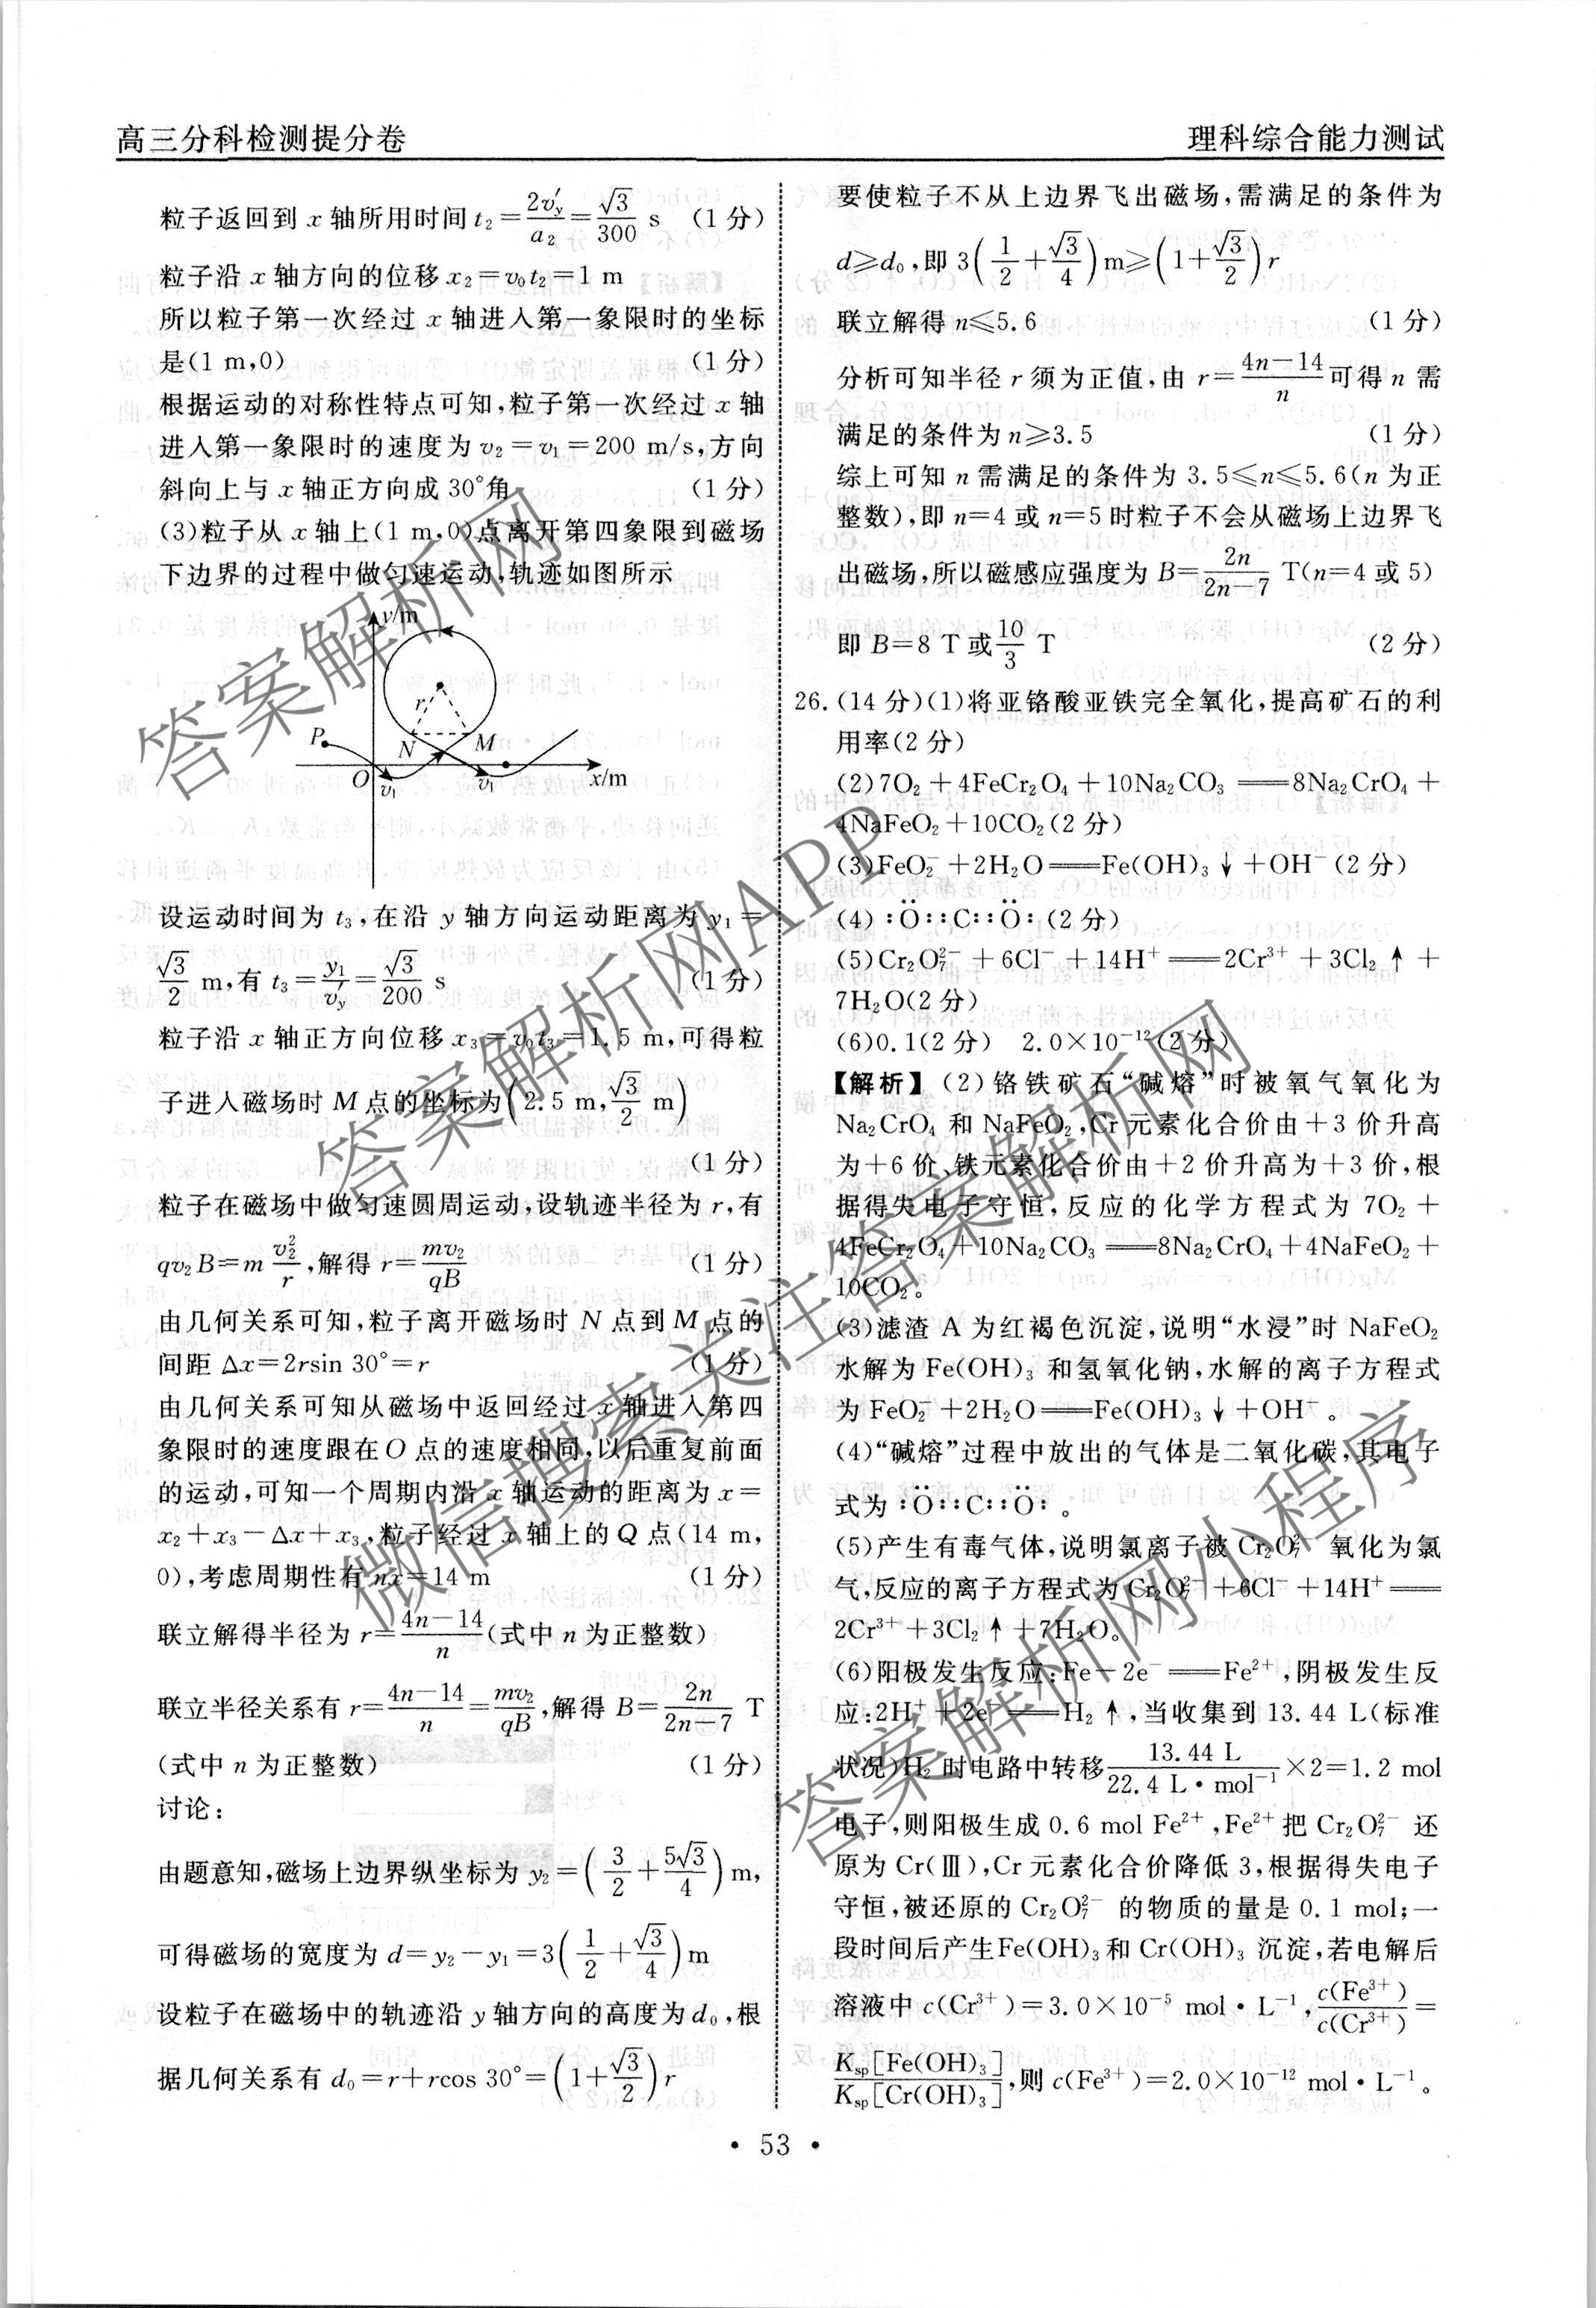 高三分科检测提分卷
理科综合能力测试
粒子返回到 x 轴所用时间 t₂=2v′y/a₂=√3/300 s (1 分)
粒子沿 x 轴方向的位移 x₂=v₀t₂=1 m
所以粒子第一次经过 x 轴进入第一象限时的坐标
是(1 m,0) (1 分)
根据运动的对称性特点可知,粒子第一次经过 x 轴
进入第一象限时的速度为 v₂=v₁=200 m/s,方向
斜向上与 x 轴正方向成 30°角 (1 分)
(3)粒子从 x 轴上(1 m,0)点离开第四象限到磁场
下边界的过程中做匀速运动,轨迹如图所示
y/m
r
P
N
M
O
v₁
v₁
x/m
设运动时间为 t₃,在沿 y 轴方向运动距离为 y₁=
√3/2 m,有 t₃=y₁/v′y=√3/200 s (1 分)
粒子沿 x 轴正方向位移 x₃=v₀t₃=1.5 m,可得粒
子进入磁场时 M 点的坐标为(2.5 m,√3/2 m)
(1 分)
粒子在磁场中做匀速圆周运动,设轨迹半径为 r,有
qv₂B=m v₂²/r,解得 r=mv₂/qB (1 分)
由几何关系可知,粒子离开磁场时 N 点到 M 点的
间距 Δx=2rsin 30°=r (1 分)
由几何关系可知从磁场中返回经过 x 轴进入第四
象限时的速度跟在 O 点的速度相同,以后重复前面
的运动,可知一个周期内沿 x 轴运动的距离为 x=
x₂+x₃-Δx+x₃,粒子经过 x 轴上的 Q 点(14 m,
0),考虑周期性有 nx=14 m (1 分)
联立解得半径为 r=4n-14/n(式中 n 为正整数)
联立半径关系有 r=4n-14/n=mv₂/qB,解得 B=2n/2n-7 T
(式中 n 为正整数) (1 分)
讨论:
由题意知,磁场上边界纵坐标为 y₂=(3/2+5√3/4)m,
可得磁场的宽度为 d=y₂-y₁=3(1/2+√3/4)m
设粒子在磁场中的轨迹沿 y 轴方向的高度为 d₀,根
据几何关系有 d₀=r+rcos 30°=(1+√3/2)r
要使粒子不从上边界飞出磁场,需满足的条件为
d≥d₀,即 3(1/2+√3/4)m≥(1+√3/2)r
联立解得 n≤5.6 (1 分)
分析可知半径 r 须为正值,由 r=4n-14/n可得 n 需
满足的条件为 n≥3.5 (1 分)
综上可知 n 需满足的条件为 3.5≤n≤5.6(n 为正
整数),即 n=4 或 n=5 时粒子不会从磁场上边界飞
出磁场,所以磁感应强度为 B=2n/2n-7 T(n=4 或 5)
即 B=8 T 或10/3 T (2 分)
26.(14 分)(1)将亚铬酸亚铁完全氧化,提高矿石的利
用率(2 分)
(2)7O₂+4FeCr₂O₄+10Na₂CO₃══8Na₂CrO₄+
4NaFeO₂+10CO₂(2 分)
(3)FeO₂⁻+2H₂O══Fe(OH)₃↓+OH⁻(2 分)
(4):Ö::C::Ö:(2 分)
(5)Cr₂O₇²⁻+6Cl⁻+14H⁺══2Cr³⁺+3Cl₂↑+
7H₂O(2 分)
(6)0.1(2 分) 2.0×10⁻¹²(2 分)
【解析】(2)铬铁矿石“碱熔”时被氧气氧化为
Na₂CrO₄ 和 NaFeO₂,Cr 元素化合价由+3 价升高
为+6 价、铁元素化合价由+2 价升高为+3 价,根
据得失电子守恒,反应的化学方程式为 7O₂+
4FeCr₂O₄+10Na₂CO₃══8Na₂CrO₄+4NaFeO₂+
10CO₂。
(3)滤渣 A 为红褐色沉淀,说明“水浸”时 NaFeO₂
水解为 Fe(OH)₃ 和氢氧化钠,水解的离子方程式
为 FeO₂⁻+2H₂O══Fe(OH)₃↓+OH⁻。
(4)“碱熔”过程中放出的气体是二氧化碳,其电子
式为:Ö::C::Ö:。
(5)产生有毒气体,说明氯离子被 Cr₂O₇²⁻ 氧化为氯
气,反应的离子方程式为 Cr₂O₇²⁻+6Cl⁻+14H⁺══
2Cr³⁺+3Cl₂↑+7H₂O。
(6)阳极发生反应:Fe-2e⁻══Fe²⁺,阴极发生反
应:2H⁺+2e⁻══H₂↑,当收集到 13.44 L(标准
状况)H₂ 时电路中转移13.44 L/22.4 L·mol⁻¹×2=1.2 mol
电子,则阳极生成 0.6 mol Fe²⁺,Fe²⁺把 Cr₂O₇²⁻ 还
原为 Cr(Ⅲ),Cr 元素化合价降低 3,根据得失电子
守恒,被还原的 Cr₂O₇²⁻ 的物质的量是 0.1 mol;一
段时间后产生Fe(OH)₃和 Cr(OH)₃ 沉淀,若电解后
溶液中 c(Cr³⁺)=3.0×10⁻⁵ mol·L⁻¹,c(Fe³⁺)/c(Cr³⁺)=
Ksp[Fe(OH)₃]/Ksp[Cr(OH)₃],则 c(Fe³⁺)=2.0×10⁻¹² mol·L⁻¹。
·53·
答案解析网
答案解析网APP
微信搜索关注答案解析网
答案解析网小程序